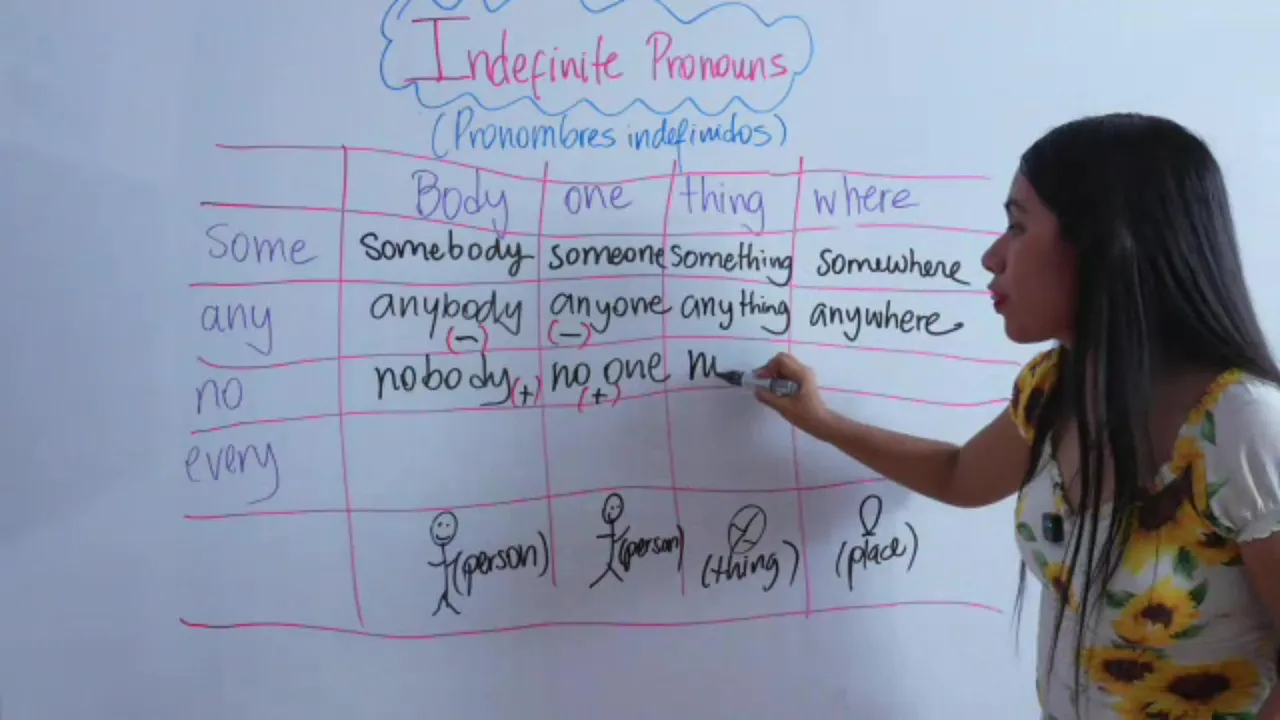 Indefinite Pronouns
(Pronombres indefinidos)
Body one thing where
Some somebody someone something somewhere
any anybody anyone anything anywhere
(-) (-)
no nobody (+) no one
(+)
every
(person) (person) (thing) (place)